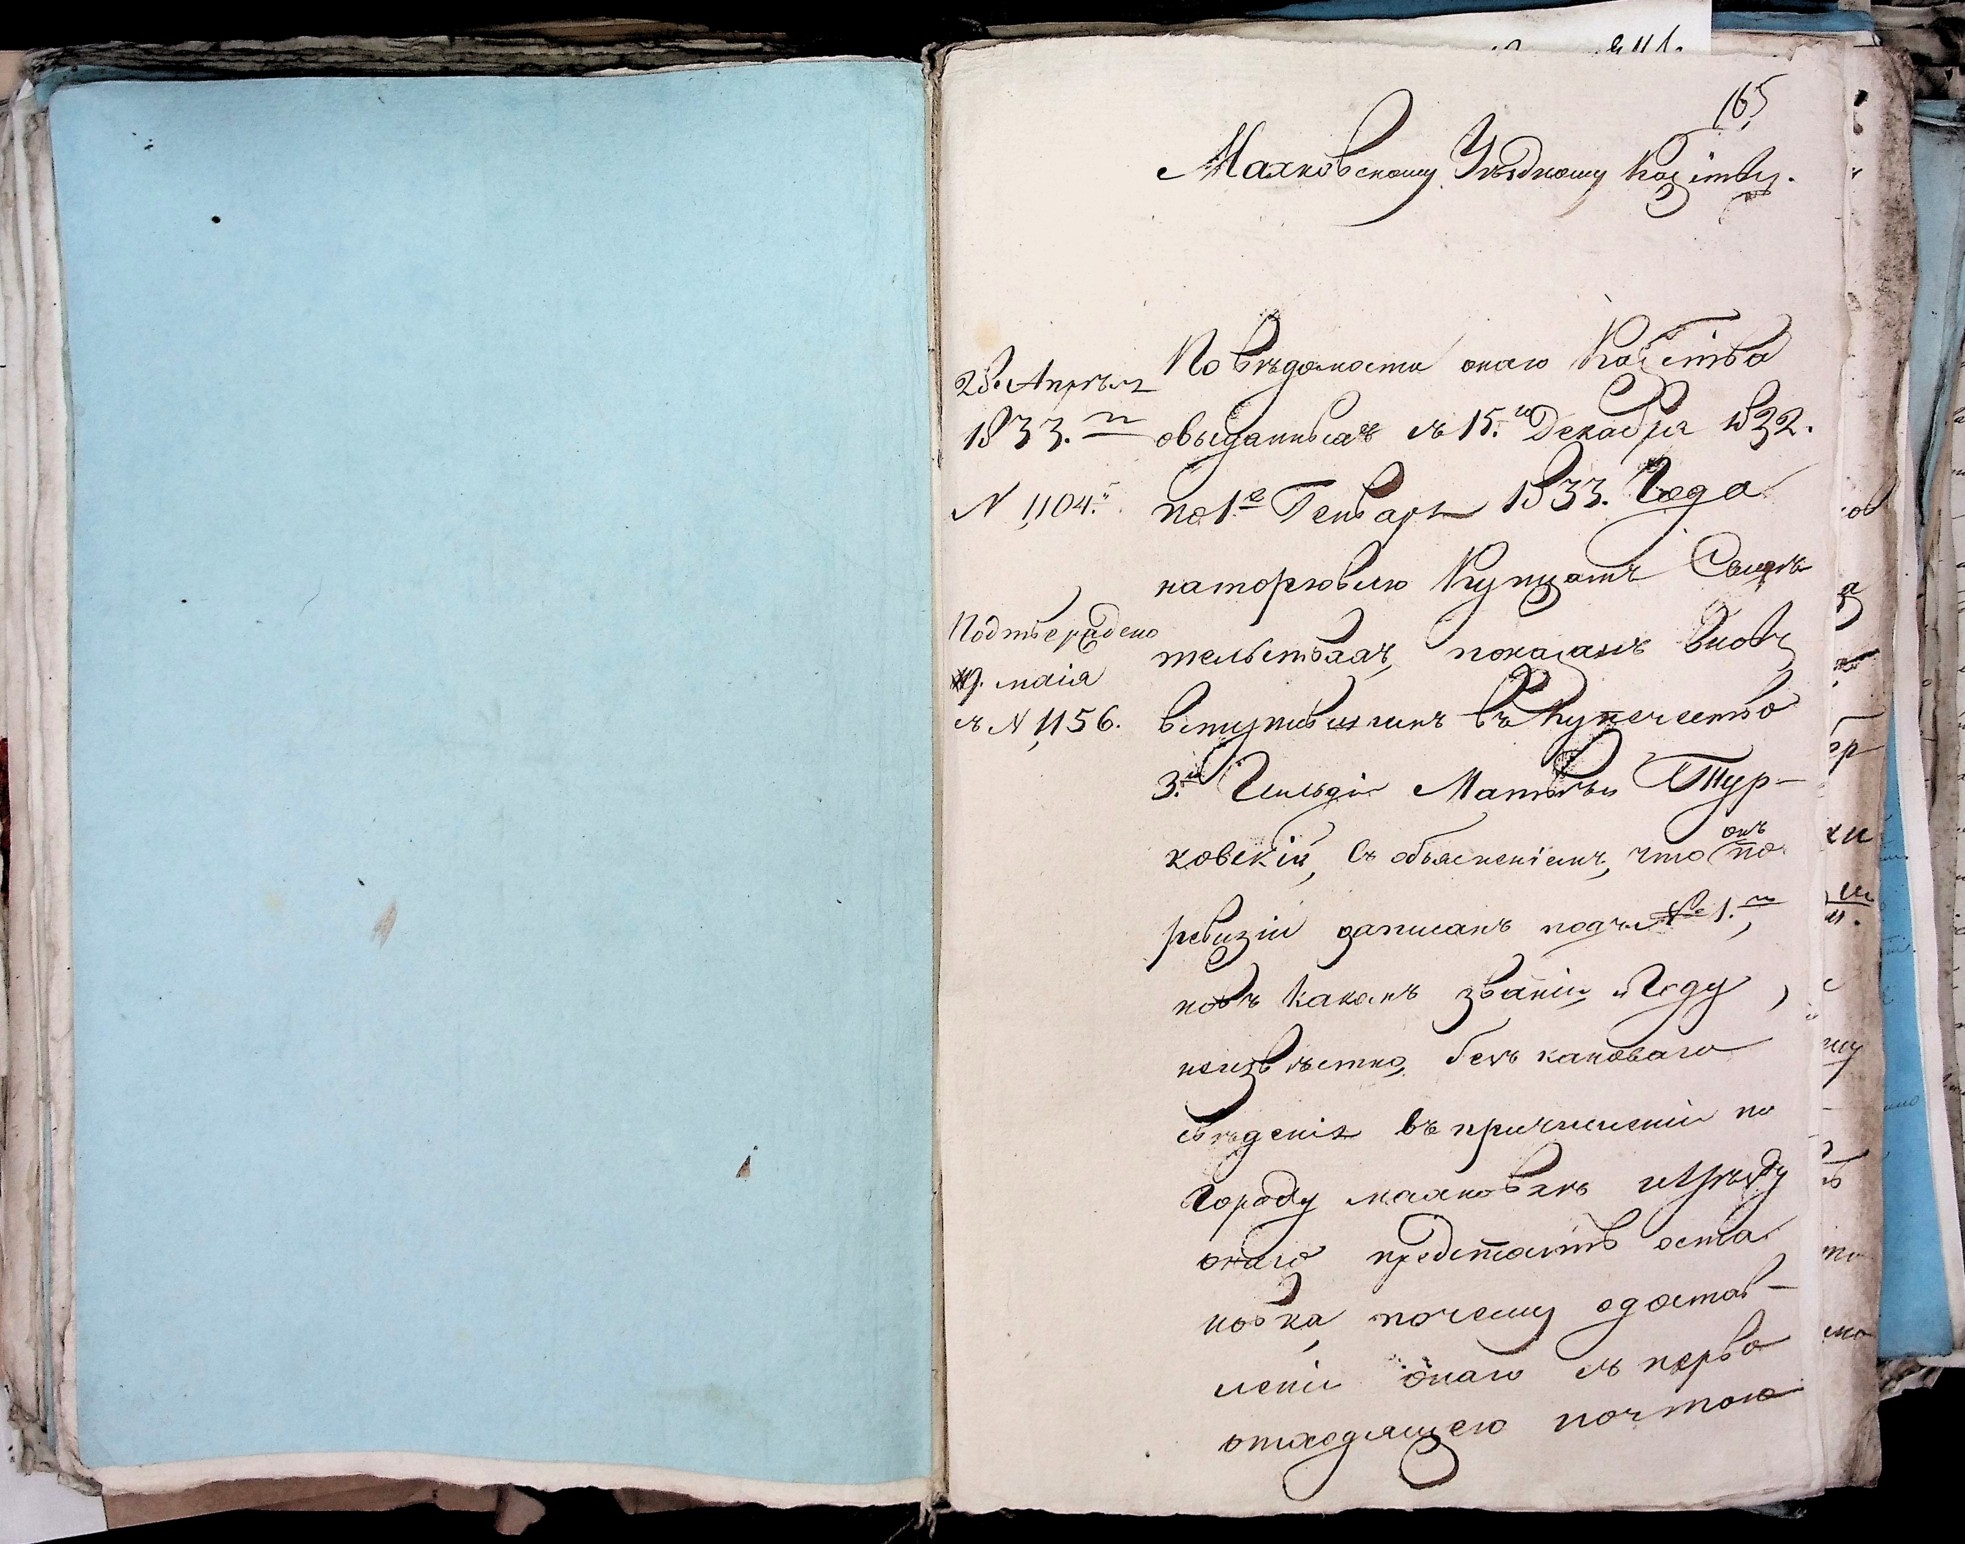 165
Махновскому Уѣздному Каз-ству.
28. Апрѣля
1833.го
N 1,104.й
Подтверждено
9. маія
съ N 1,156.
По вѣдомости онаго Каз-ства
овыданныхъ съ 15.го Декабря 1832.
по 1е Генваря 1833. Года
наторговлю Купцамъ Свидѣ
тельствахъ, показанъ вновь
вступившимъ въ Купечество
3.й Гильдіи Матвѣй Тур-
ковскій, съ объясненіемъ, что онъ по
ревизіи записанъ подъ № 1.мъ,
новъ какомъ званіи и Году,
неизвѣстно, безъ каковаго
свѣденія въ причисленіи по
городу махновкѣ и Уѣзду
онаго предстоитъ оста
новка, почему одостав-
леніи онаго съ перво
отходящею почтою